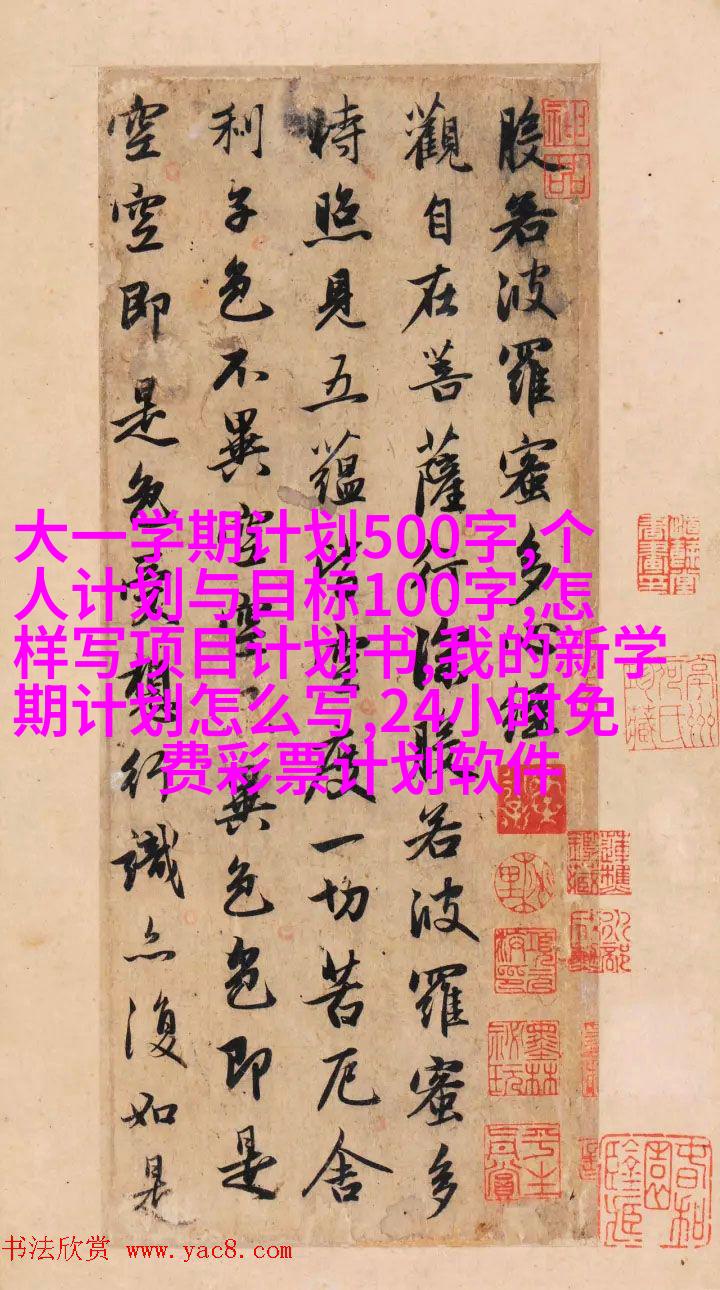 般若波羅蜜多心經
觀自在菩薩行深般若波羅蜜多
時照見五蘊皆空度一切苦厄舍
利子色不異空空不異色色即是
空空即是色受想行識亦復如是
神品
墨林祕玩
大一学期计划500字,个
人计划与目标100字,怎
样写项目计划书,我的新学
期计划怎么写,24小时免
费彩票计划软件
书法欣赏 www.yac8.com